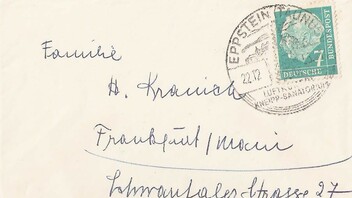 Familie
H. Kranich
Frankfurt/Main
Schwanthaler Strasse 27
EPPSTEIN (TAUNUS)
22.12
LUFTKURORT
KNEIPP-SANATORIUM
7
DEUTSCHE
BUNDESPOST